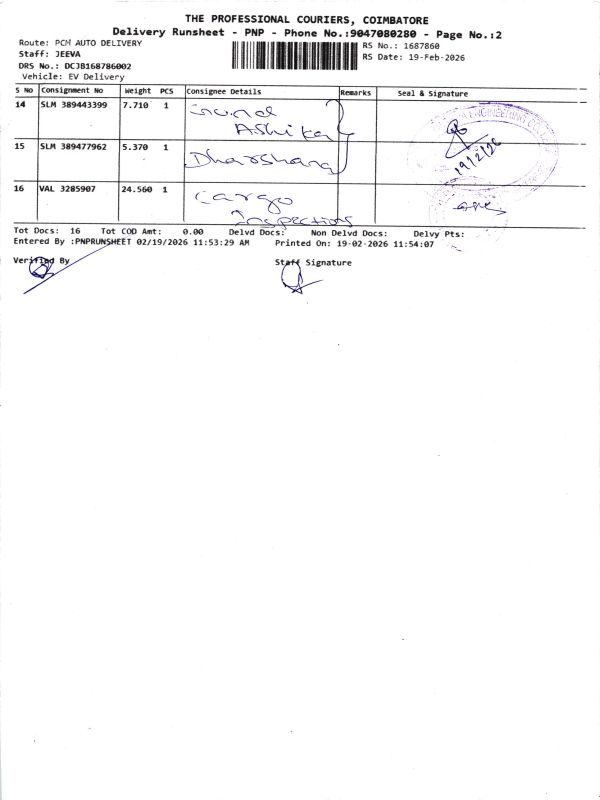 THE PROFESSIONAL COURIERS, COIMBATORE
Delivery Runsheet - PNP - Phone No.:9047080280 - Page No.:2
Route: PCM AUTO DELIVERY
Staff: JEEVA
DRS No.: DCJB168786002
Vehicle: EV Delivery
RS No.: 1687860
RS Date: 19-Feb-2026
S No Consignment No Weight PCS Consignee Details Remarks Seal & Signature
14 SLM 389443399 7.710 1
Ashika
15 SLM 389477962 5.370 1 Dharshana
ENGINEERING
19/2/26
16 VAL 3285907 24.560 1 Cargo
Inspections
Tot Docs: 16 Tot COD Amt: 0.00 Delvd Docs: Non Delvd Docs: Delvy Pts:
Entered By :PNPRUNSHEET 02/19/2026 11:53:29 AM Printed On: 19-02-2026 11:54:07
Verified By Staff Signature